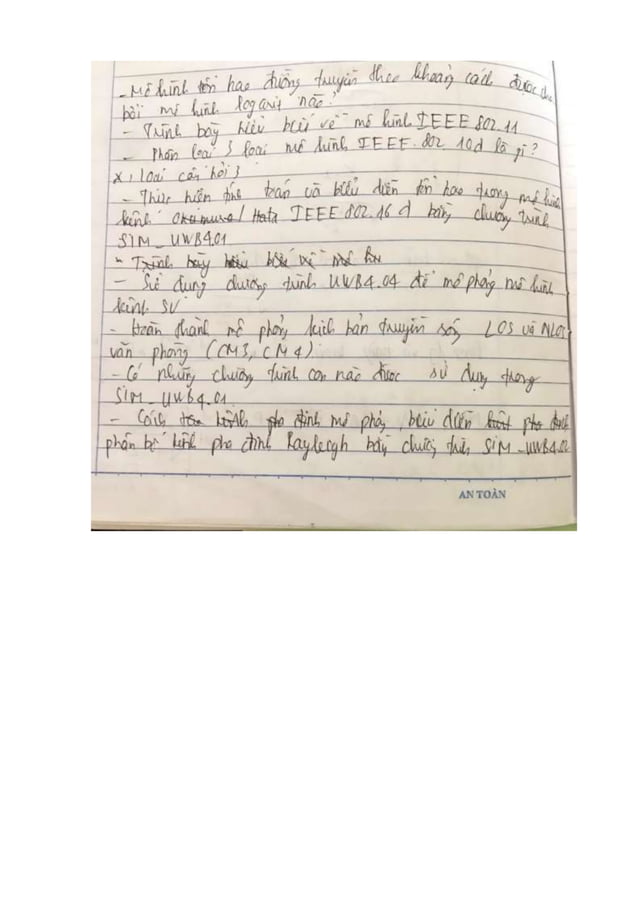 - Mô hình tổn hao đường truyền theo khoảng cách được cho
bởi mô hình logarit nào?
- Trình bày hiểu biết về mô hình IEEE 802.11
- Phân loại 3 loại mô hình IEEE. 802 16d là gì?
x, Loại câu hỏi 3
- Thực hiện tính toán và biểu diễn tổn hao trong mô hình
kênh Okumura/Hata IEEE 802.16 d bằng chương trình
SIM_UWB4.01
- Trình bày hiểu biết về mô hì
- Sử dụng chương trình UWB4.04 để mô phỏng mô hình
kênh SV
- Hoàn thành mô phỏng kịch bản truyền sóng LOS và NLOS
văn phòng (CM3, CM4)
- Có những chương trình con nào được sử dụng trong
SIM_UWB4.01
- Cách kênh pha đinh mô phỏng, biểu diễn pha đinh
phân bố kênh pha đinh Rayleigh bằng chương trình SIM_UWB4.02
AN TOÀN